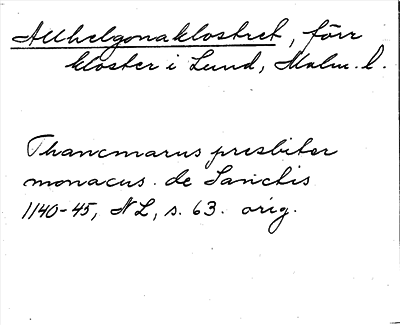 Allhelgonaklostret, förr
kloster i Lund, Malm. l.
Thancmarus presbiter
monacus. de Sanctis
1140-45, NL, s. 63. orig.